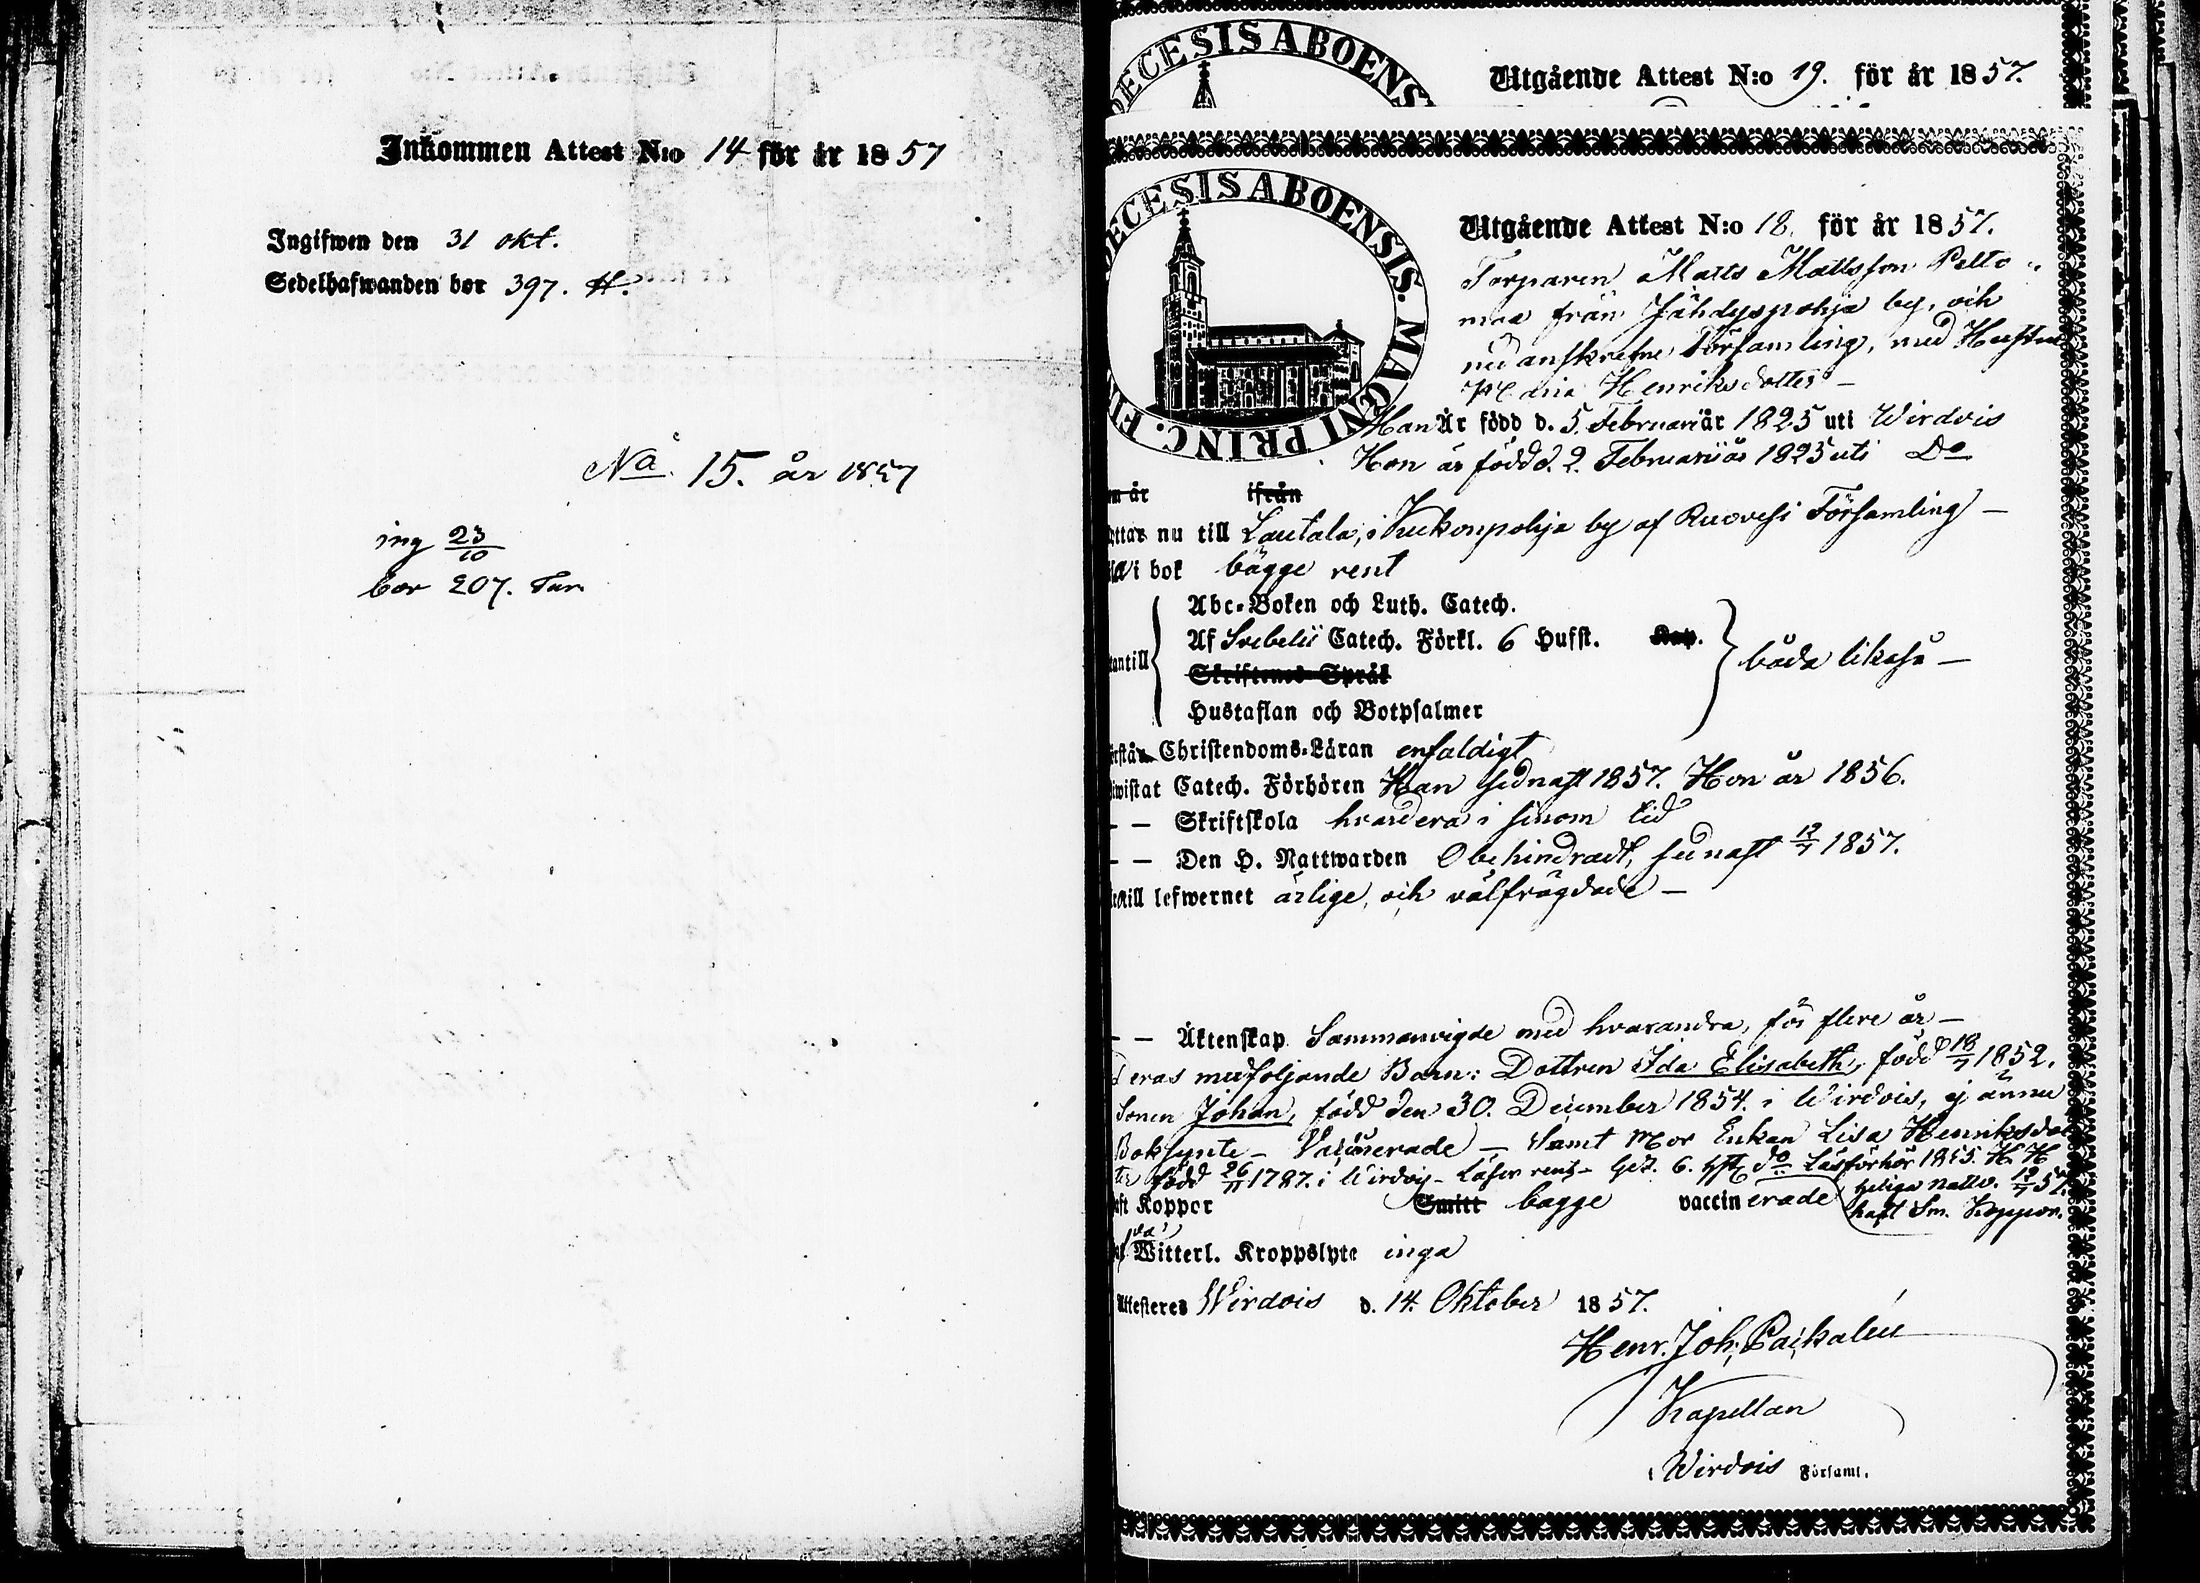 Inkommen Attest N:o 14 för år 1857
Ingifwen den 31 okt.
Sedelhafwanden bor 397. H.
No. 15. år 1857
ing 23/10
bor 207. Tur.
DECESIS ABOENS
Utgående Attest N:o 19. för år 1857.
ECESIS ABOENSIS. MAGNI PRINC. FI
Utgående Attest N:o 18. för år 1857.
Torparen Matts Mattsson Pelto-
maa från Jähdyspohja by, och
nedanskrefne Församling, med Hustru
Maria Henriksdotter –
Han Är född d. 5. Februarii år 1825 uti Wirdois
Hon är född d. 2. Februarii år 1825 uti Do
m år ifrån
ttar nu till Lautala, i Kukonpohja by af Ruovesi Församling –
i bok bägge rent
Abc-Boken och Luth. Catech.
Af Svebelii Catech. Förkl. 6 Hufst. Kap.
antill
Skriftenes Språk
båda likaså –
Hustaflan och Botpsalmer
rstån Christendoms-Läran enfaldigt
iwistat Catech. Förhören Han sednast 1857. Hon år 1856.
– – Skriftskola hvardera i sinom tid
– – Den H. Nattwarden Obehindradt, sednast 12/7 1857.
till lefwernet ärlige, och välfrägdade –
– – Äktenskap Sammanvigde med hvarandra, för flere år –
Deras medföljande Barn: Dottren Ida Elisabeth, född 18/7 1852.
Sonen Johan, född den 30. December 1854. i Wirdois, ej ännu
Boksynte – Vaccinerade – Samt Mor Enkan Lisa Henriksdot-
ter född 26/11 1787. i Wirdois – Läser rent – 6. Hfst do Läsförhör 1855. H. H
heliga nattv. 12/7 57.
ft Koppor Smitt bägge vaccinerade haft Sm. Koppor.
Witterl. Kroppslyte inga
Attesteres Wirdois d. 14. Oktober 1857.
Henr. Joh. Paikalén
Kapellan
i Wirdois Församl.